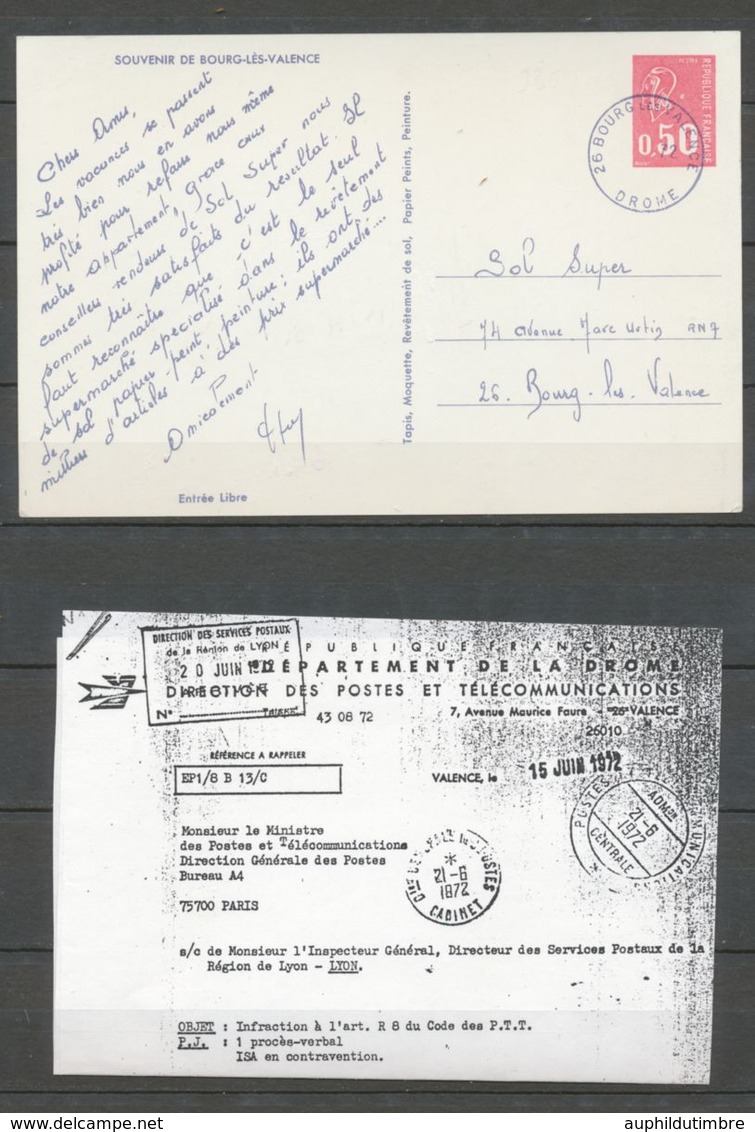 SOUVENIR DE BOURG-LÈS-VALENCE
Chers Amis,
Les vacances se passent
très bien nous en avons
profité pour refaire nous même
notre appartement, grâce aux
conseillers vendeurs de Sol Super nous
sommes très satisfaits du résultat. Il
faut reconnaître que c'est le seul
supermarché spécialisé dans le revêtement
de sol, papier-peint, peinture; ils ont des
milliers d'articles à des prix supermarché....
Amicalement
Entrée Libre
Tapis, Moquette, Revêtement de sol, Papier Peints, Peinture.
RÉPUBLIQUE FRANÇAISE
0,50
26 BOURG LES VALENCE
DROME
Sol Super
74 avenue Marc Urtin RN7
26. Bourg-les-Valence
DIRECTION DES SERVICES POSTAUX
de la Région de LYON
20 JUIN 1972
N°
RÉPUBLIQUE FRANÇAISE
DÉPARTEMENT DE LA DROME
DIRECTION DES POSTES ET TÉLÉCOMMUNICATIONS
43 08 72
7, Avenue Maurice Faure - 26 VALENCE
26010
RÉFÉRENCE A RAPPELER
EP1/8 B 13/C
VALENCE, le 15 JUIN 1972
POSTES
ADMON
CENTRALE
21-6
1972
Monsieur le Ministre
des Postes et Télécommunications
Direction Générale des Postes
Bureau A4
75700 PARIS
POSTES
21-6
1972
CABINET
s/c de Monsieur l'Inspecteur Général, Directeur des Services Postaux de la
Région de Lyon - LYON.
OBJET : Infraction à l'art. R 8 du Code des P.T.T.
P.J. : 1 procès-verbal
ISA en contravention.
auphildutimbre.com